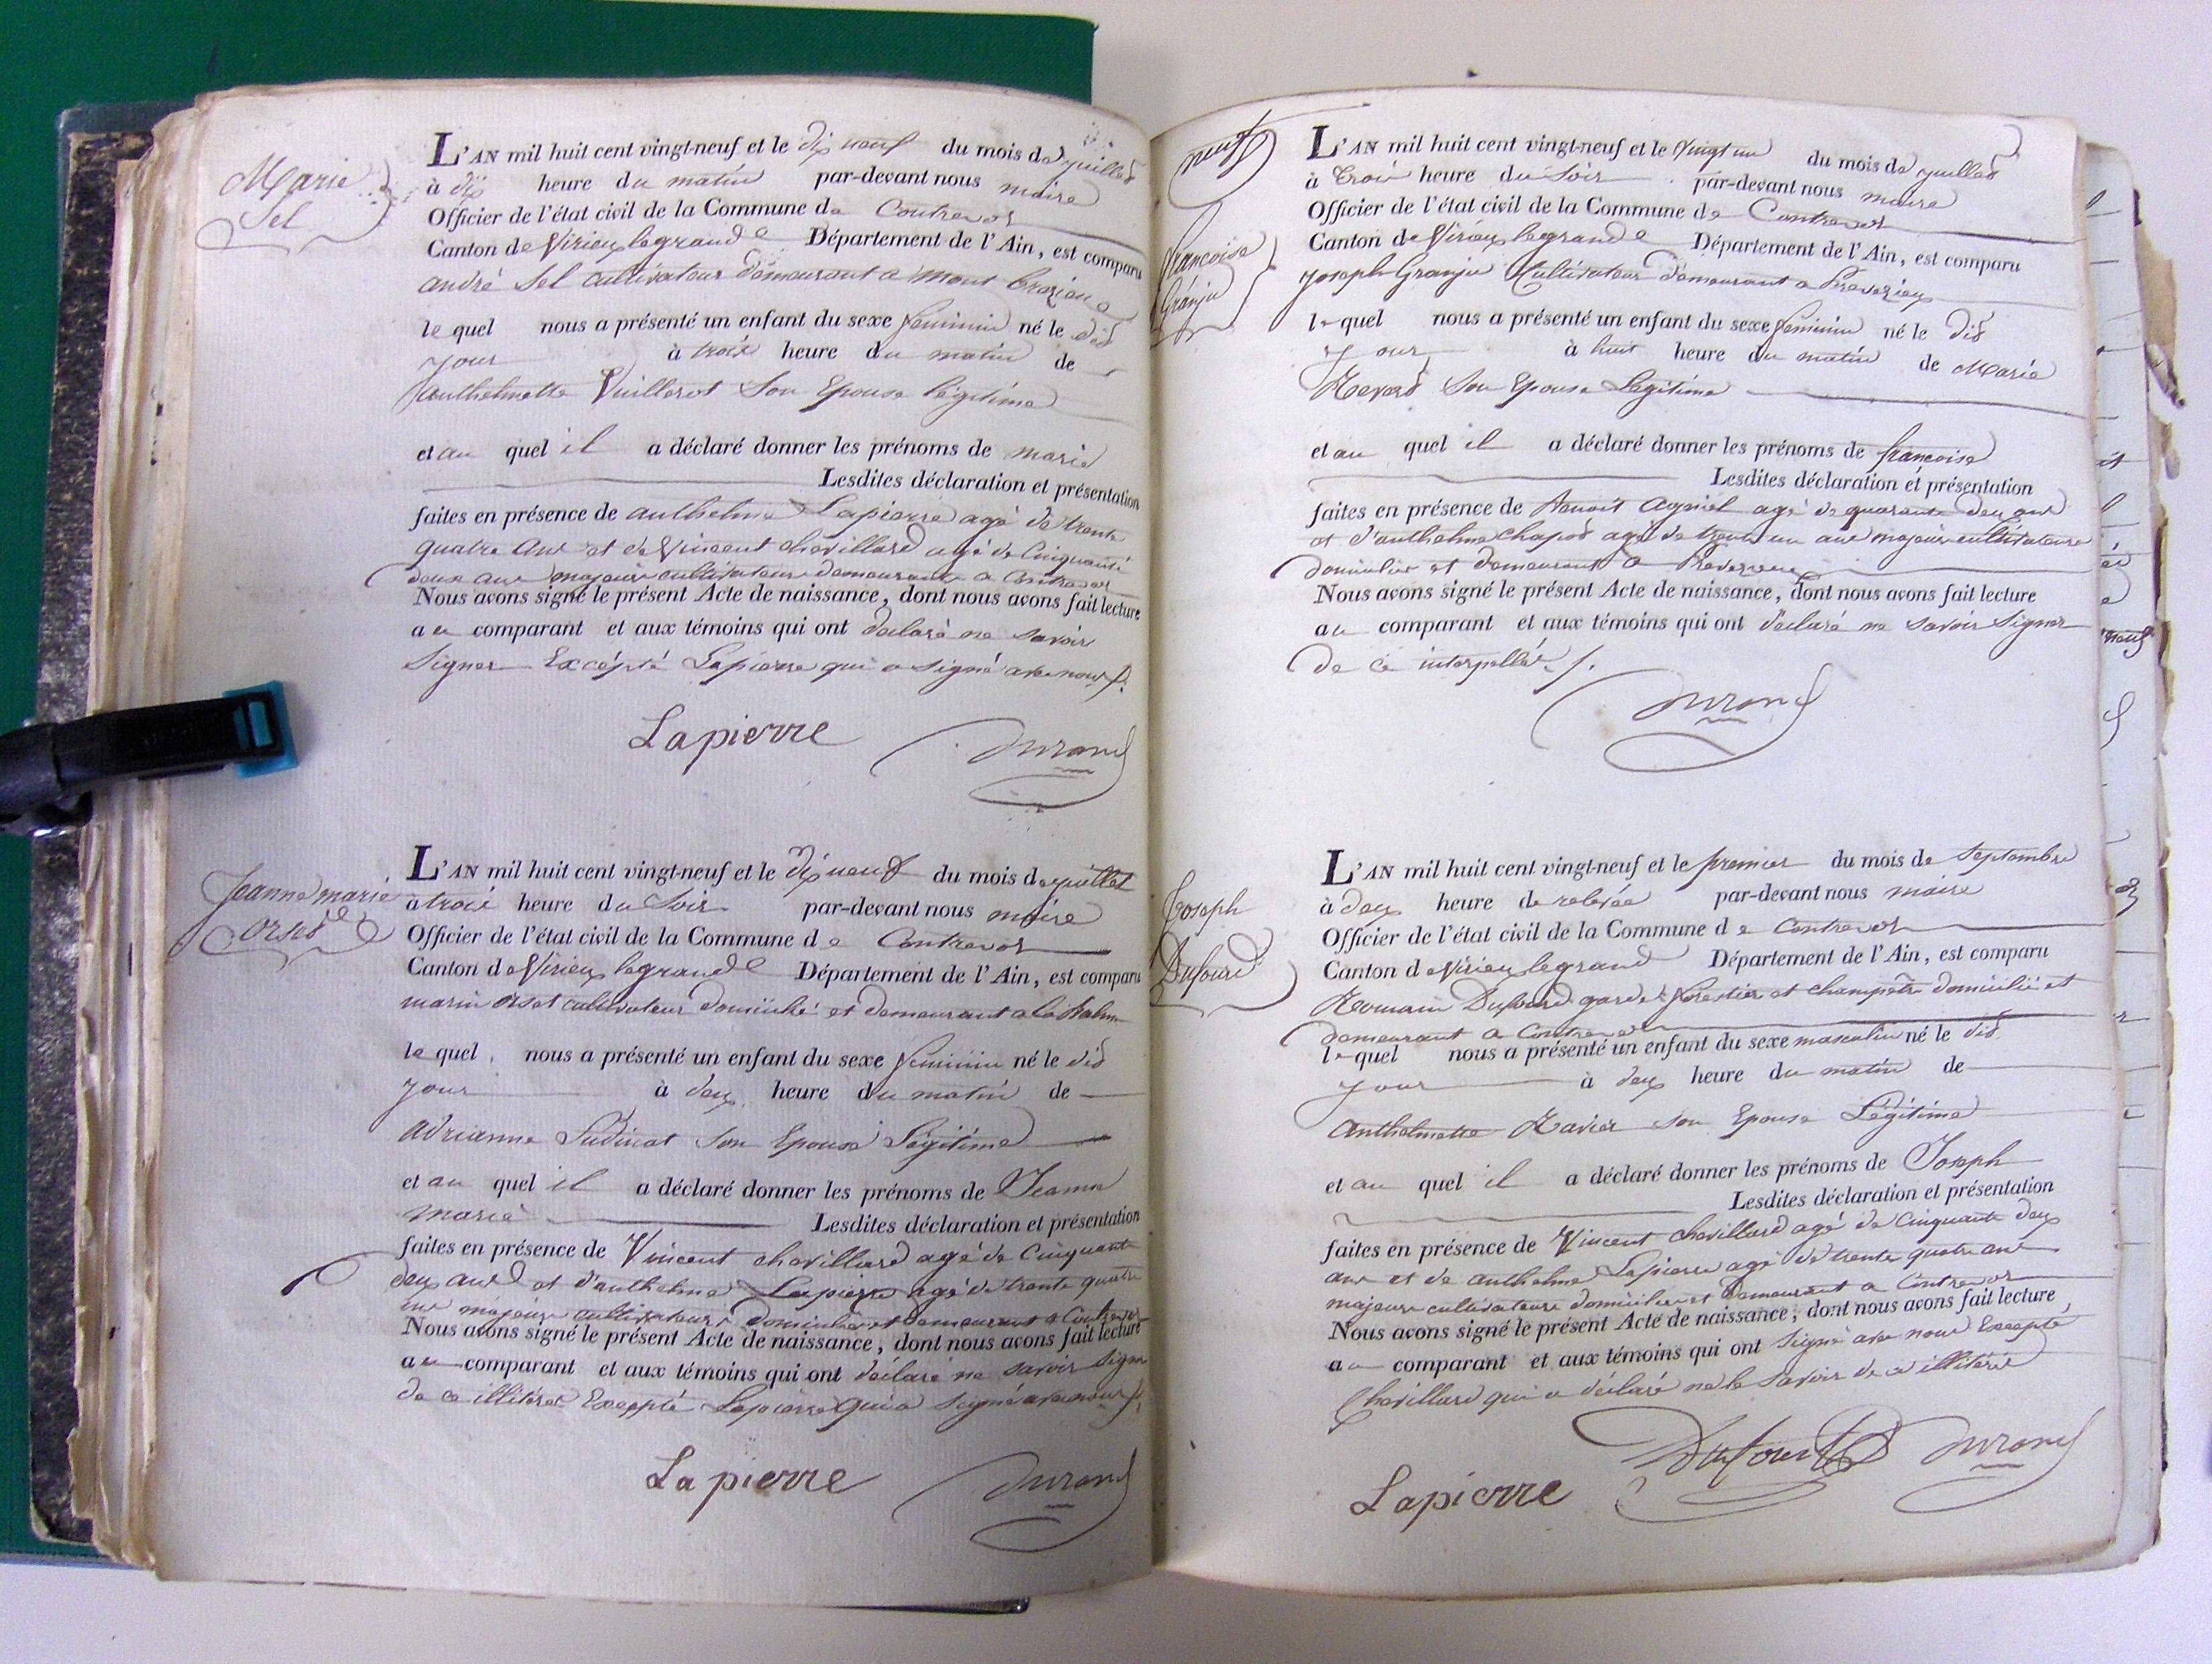 Marie
Sel
L'AN mil huit cent vingt-neuf et le dix neuf du mois de juillet
à dix heure du matin par-devant nous maire
Officier de l'état civil de la Commune de Contrevoz
Canton de Virieux legrand Département de l'Ain, est comparu
andré Sel cultivateur demeurant a mont
le quel nous a présenté un enfant du sexe feminin né le dit
jour à trois heure du matin de
anthelmette Vuillerot Son Epouse légitime
et au quel il a déclaré donner les prénoms de marie
Lesdites déclaration et présentation
faites en présence de anthelme Lapierre agé de trente
quatre ans et de Vincent chevillard agé de Cinquante
deux ans majeurs cultivateurs demeurants a Contrevoz
Nous avons signé le présent Acte de naissance, dont nous avons fait lecture
au comparant et aux témoins qui ont déclaré ne savoir
Signer Excépté Lapierre qui a signé avec nous ./.
Lapierre Durand
Jeanne marie
orset
L'AN mil huit cent vingt-neuf et le dix neuf du mois de juillet
à trois heure du Soir par-devant nous maire
Officier de l'état civil de la Commune de Contrevoz
Canton de Virieux legrand Département de l'Ain, est comparu
marin orset cultivateur domicilié et demeurant a la
le quel nous a présenté un enfant du sexe feminin né le dit
jour à deux heure du matin de
adrianne Sudinat Son Epouse Légitime
et au quel il a déclaré donner les prénoms de Jeanne
marie Lesdites déclaration et présentation
faites en présence de Vincent chevillard agé de Cinquante
deux ans et d'anthelme Lapierre agé de trente quatre
ans majeurs cultivateurs domicilies et demeurant a Contrevoz
Nous avons signé le présent Acte de naissance, dont nous avons fait lecture
au comparant et aux témoins qui ont déclaré ne savoir signer
de ce illitérés Exeppté Lapierre qui a signé avec nous ./.
Lapierre Durand
neuf
francoise
Granju
L'AN mil huit cent vingt-neuf et le vingt un du mois de juillet
à trois heure du Soir par-devant nous maire
Officier de l'état civil de la Commune de Contrevoz
Canton de Virieux legrand Département de l'Ain, est comparu
joseph Granju Cultivateur demeurant a Preverieux
le quel nous a présenté un enfant du sexe feminin né le dit
jour à huit heure du matin de Marie
Revers Son Epouse Légitime
et au quel il a déclaré donner les prénoms de francoise
Lesdites déclaration et présentation
faites en présence de Benoit agniel agé de quarante deux ans
et d'anthelme chapot agé de trente un ans majeurs cultivateurs
domicilies et demeurant a
Nous avons signé le présent Acte de naissance, dont nous avons fait lecture
au comparant et aux témoins qui ont déclaré ne savoir signer
de ce interpellés ./.
Durand
Joseph
Dufourd
L'AN mil huit cent vingt-neuf et le premier du mois de Septembre
à deux heure de relevée par-devant nous maire
Officier de l'état civil de la Commune de Contrevoz
Canton de Virieu legrand Département de l'Ain, est comparu
Romain Dufourd garde forestier et champetre domicilié et
demeurant a Contrevoz
le quel nous a présenté un enfant du sexe masculin né le dit
jour à deux heure du matin de
Anthelmette Ravier son Epouse Légitime
et au quel il a déclaré donner les prénoms de Joseph
Lesdites déclaration et présentation
faites en présence de Vincent chevillard agé de Cinquante deux
ans et de anthelme Lapierre agé de trente quatre ans
majeurs cultivateurs domicilies et demeurant a Contrevoz
Nous avons signé le présent Acte de naissance, dont nous avons fait lecture
au comparant et aux témoins qui ont signé avec nous Excepté
Chevillard qui a déclaré ne le savoir de ce illitéré
Lapierre Dufourd Durand
neuf